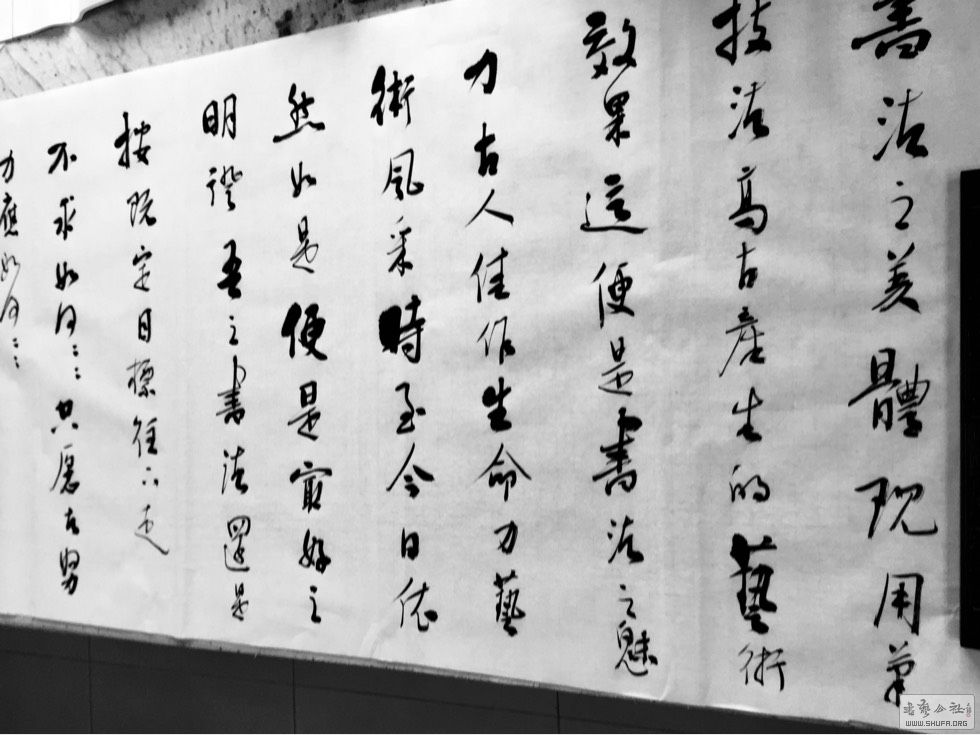 書法之美體現用筆
技法高古產生的藝術
效果這便是書法之魅
力古人佳作生命力藝
術風采時至今日依
然如是便是最好之
明證吾之書法還是
按既定目標往下走
不求如何……只愿在努
力應如何……
书艺公社
WWW.SHUFA.ORG